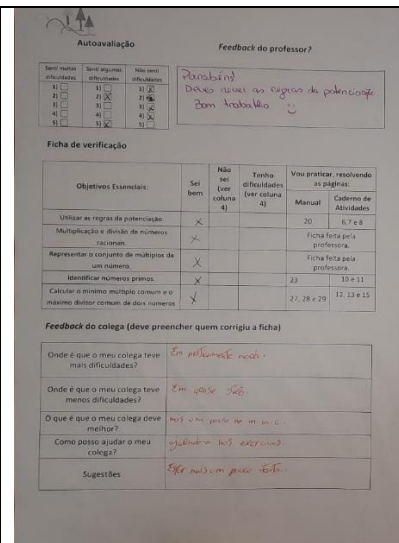 Autoavaliação
Feedback do professor?
Senti muitas dificuldades
Senti algumas dificuldades
Não senti dificuldades
1) 1) 1)
2) 2) 2)
3) 3) 3)
4) 4) 4)
5) 5) 5)
Parabéns!
Deves rever as regras da potenciação.
Bom trabalho
Ficha de verificação
Objetivos Essenciais:
Sei bem
Não sei (ver coluna 4)
Tenho dificuldades (ver coluna 4)
Vou praticar, resolvendo as páginas:
Manual
Caderno de Atividades
Utilizar as regras da potenciação.
20
6,7 e 8
Multiplicação e divisão de números racionais.
Ficha feita pela professora.
Representar o conjunto de múltiplos de um número.
Ficha feita pela professora.
Identificar números primos.
23
10 e 11
Calcular o mínimo múltiplo comum e o máximo divisor comum de dois números
27, 28 e 29
12, 13 e 15
Feedback do colega (deve preencher quem corrigiu a ficha)
Onde é que o meu colega teve mais dificuldades?
Em praticamente nada.
Onde é que o meu colega teve menos dificuldades?
Em quase
O que é que o meu colega deve melhor?
um pouco no m.m.c.
Como posso ajudar o meu colega?
nos exercícios.
Sugestões
mais um pouco